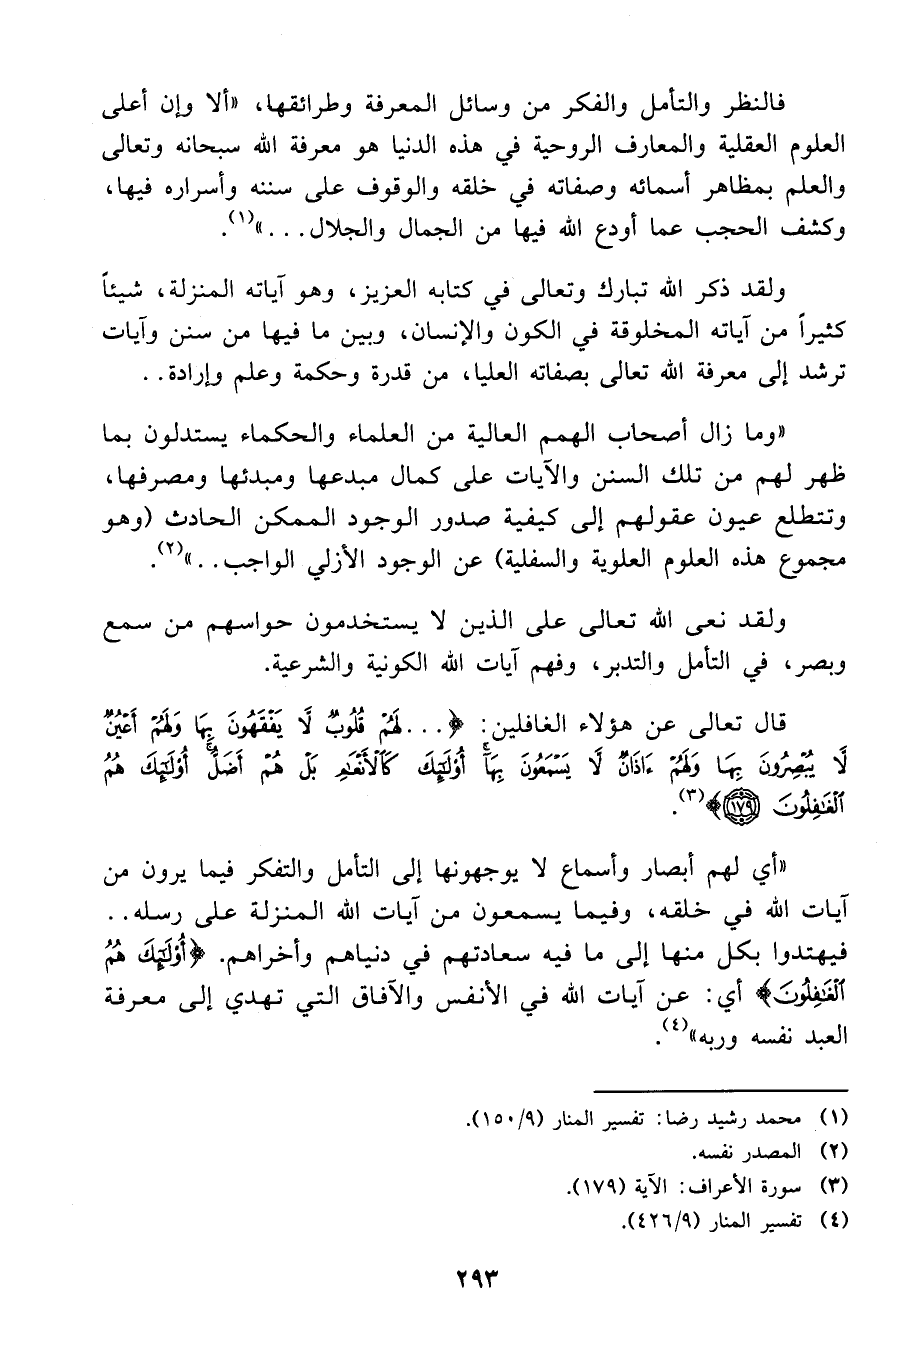 فالنظر والتأمل والفكر من وسائل المعرفة وطرائقها، «ألا وإن أعلى
العلوم العقلية والمعارف الروحية في هذه الدنيا هو معرفة الله سبحانه وتعالى
والعلم بمظاهر أسمائه وصفاته في خلقه والوقوف على سننه وأسراره فيها،
وكشف الحجب عما أودع الله فيها من الجمال والجلال...»(١).
ولقد ذكر الله تبارك وتعالى في كتابه العزيز، وهو آياته المنزلة، شيئاً
كثيراً من آياته المخلوقة في الكون والإنسان، وبين ما فيها من سنن وآيات
ترشد إلى معرفة الله تعالى بصفاته العليا، من قدرة وحكمة وعلم وإرادة..
«وما زال أصحاب الهمم العالية من العلماء والحكماء يستدلون بما
ظهر لهم من تلك السنن والآيات على كمال مبدعها ومبدئها ومصرفها،
وتتطلع عيون عقولهم إلى كيفية صدور الوجود الممكن الحادث (وهو
مجموع هذه العلوم العلوية والسفلية) عن الوجود الأزلي الواجب..»(٢).
ولقد نعى الله تعالى على الذين لا يستخدمون حواسهم من سمع
وبصر، في التأمل والتدبر، وفهم آيات الله الكونية والشرعية.
قال تعالى عن هؤلاء الغافلين: ﴿...لَهُمْ قُلُوبٌ لَّا يَفْقَهُونَ بِهَا وَلَهُمْ أَعْيُنٌ
لَّا يُبْصِرُونَ بِهَا وَلَهُمْ ءَاذَانٌ لَّا يَسْمَعُونَ بِهَآ ۚ أُوْلَٰٓئِكَ كَٱلْأَنْعَٰمِ بَلْ هُمْ أَضَلُّ ۚ أُوْلَٰٓئِكَ هُمُ
ٱلْغَٰفِلُونَ ١٧٩﴾(٣).
«أي لهم أبصار وأسماع لا يوجهونها إلى التأمل والتفكر فيما يرون من
آيات الله في خلقه، وفيما يسمعون من آيات الله المنزلة على رسله..
فيهتدوا بكل منها إلى ما فيه سعادتهم في دنياهم وأخراهم. ﴿أُوْلَٰٓئِكَ هُمُ
ٱلْغَٰفِلُونَ﴾ أي: عن آيات الله في الأنفس والآفاق التي تهدي إلى معرفة
العبد نفسه وربه»(٤).
(١) محمد رشيد رضا: تفسير المنار (٩/١٥٠).
(٢) المصدر نفسه.
(٣) سورة الأعراف: الآية (١٧٩).
(٤) تفسير المنار (٩/٤٢٦).
٢٩٣